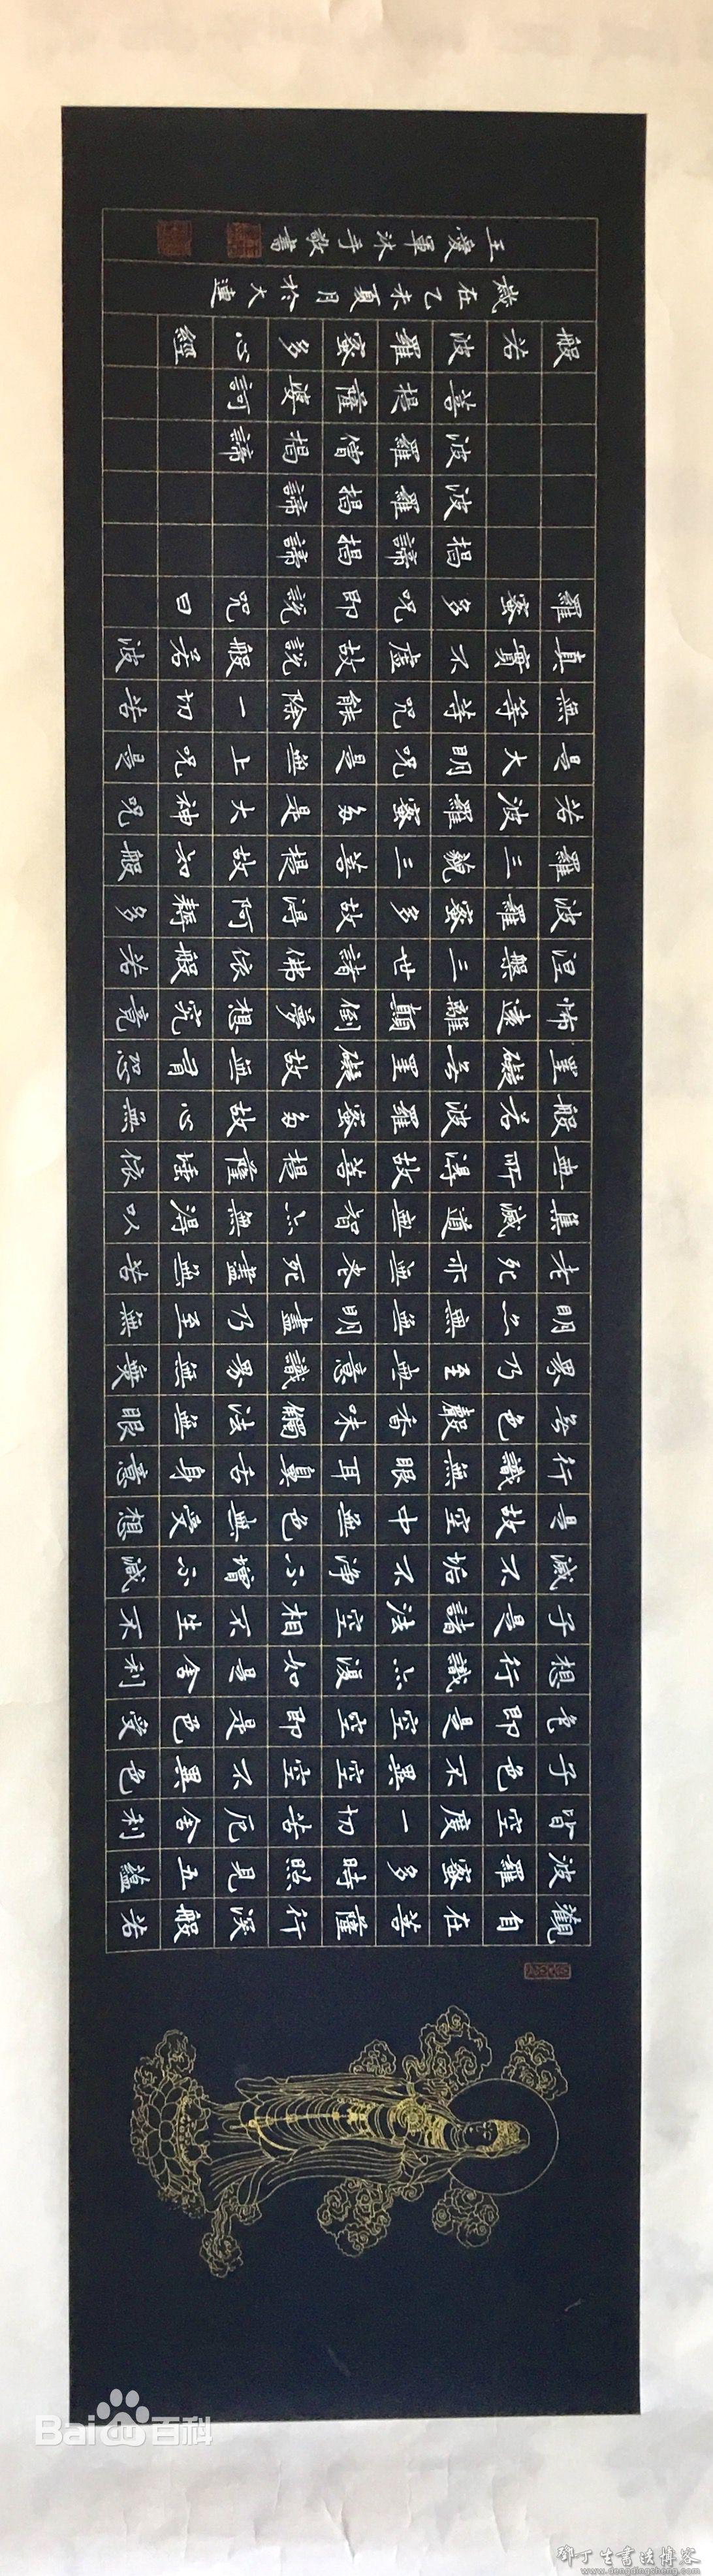 觀自在菩薩行深般若
波羅蜜多時照見五蘊
皆空度一切苦厄舍利
子色不異空空不異色
色即是空空即是色受
想行識亦復如是舍利
子是諸法空相不生不
滅不垢不淨不增不減
是故空中無色無受想
行識無眼耳鼻舌身意
無色聲香味觸法無眼
界乃至無意識界無無
明亦無無明盡乃至無
老死亦無老死盡無苦
集滅道無智亦無得以
無所得故菩提薩埵依
般若波羅蜜多故心無
罣礙無罣礙故無有恐
怖遠離顛倒夢想究竟
涅槃三世諸佛依般若
波羅蜜多故得阿耨多
羅三藐三菩提故知般
若波羅蜜多是大神咒
是大明咒是無上咒是
無等等咒能除一切苦
真實不虛故說般若波
羅蜜多咒即說咒曰
揭諦揭諦
波羅揭諦
波羅僧揭諦
菩提薩婆訶
般若波羅蜜多心經
歲在乙未夏月於大連
王愛軍沐手敬書
Bai百科
鄧丁生書法博客
www.dengdingsheng.com